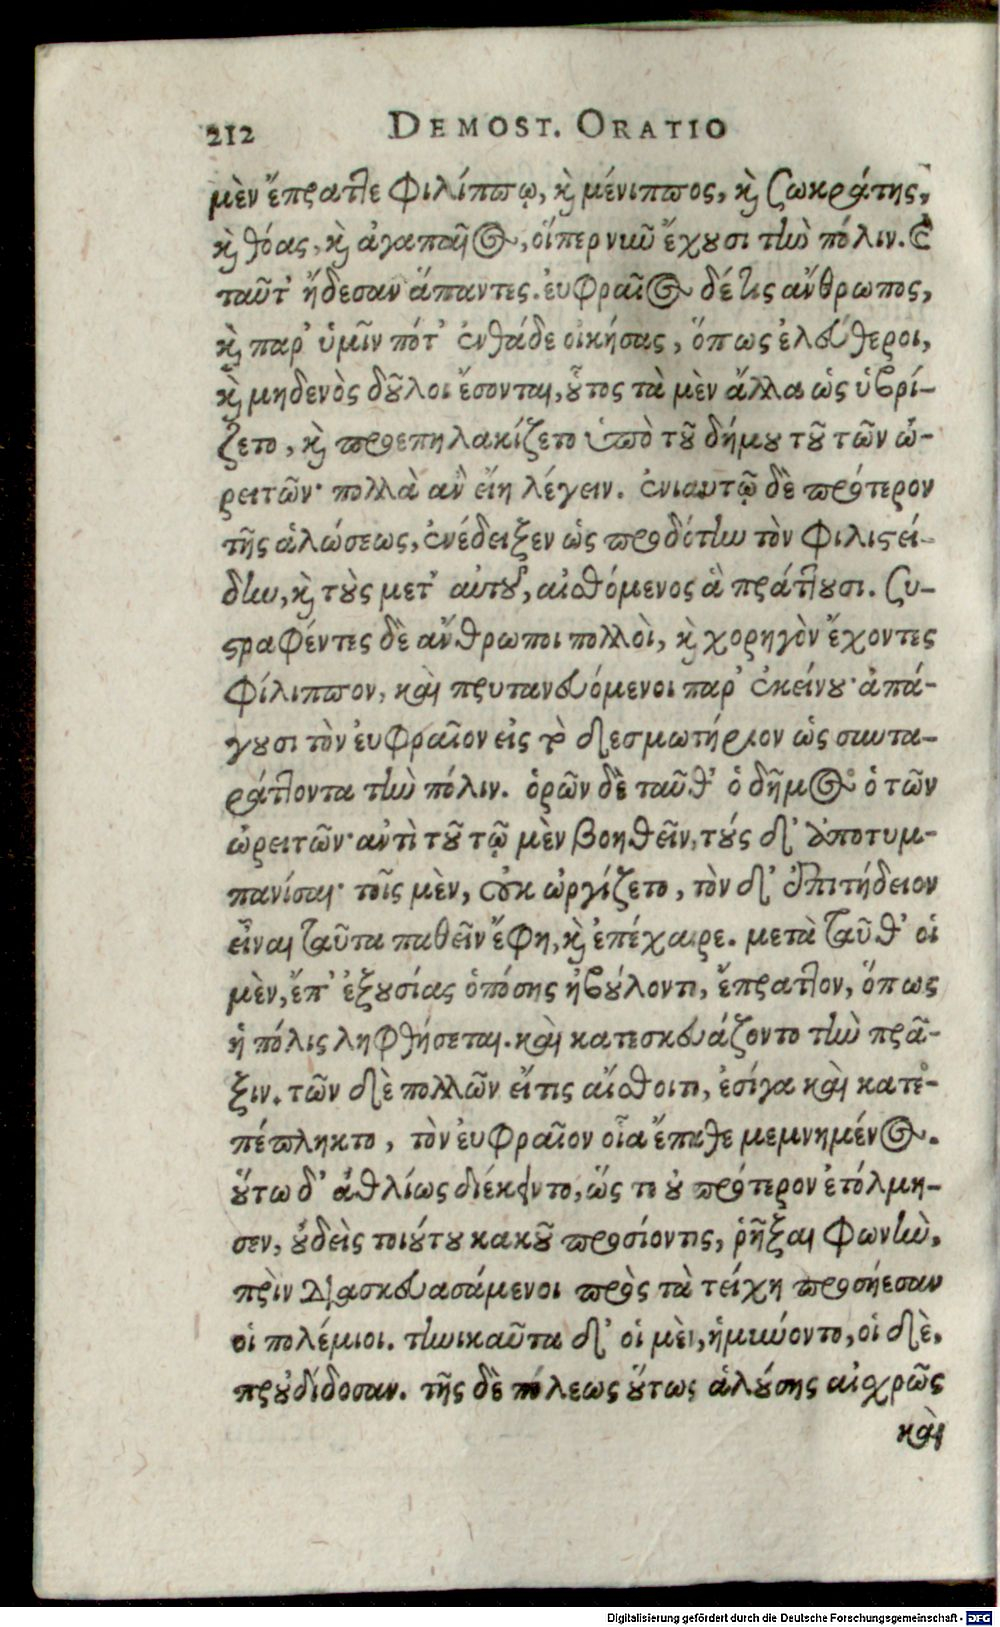 212 DEMOST. ORATIO
μὲν ἔπραττε Φιλίππῳ, καὶ μένιππος, καὶ Σωκράτης,
καὶ θόας, καὶ ἀγαπαῖος, οἵπερ νῦν ἔχουσι τὴν πόλιν. καὶ
ταῦτ' ᾔδεσαν ἅπαντες. ἐυφραῖος δέ τις ἄνθρωπος,
καὶ παρ' ὑμῖν πότ' ἐνθάδε οἰκήσας, ὅπως ἐλεύθεροι,
καὶ μηδενὸς δοῦλοι ἔσονται, οὗτος τὰ μὲν ἄλλα ὡς ὑβρί-
ζετο, καὶ προεπηλακίζετο ὑπὸ τοῦ δήμου τοῦ τῶν ὠ-
ρειτῶν· πολλὰ ἂν εἴη λέγειν. ἐνιαυτῷ δὲ πρότερον
τῆς ἁλώσεως, ἐνέδειξεν ὡς προδότην τὸν Φιλιστεί-
δην, καὶ τοὺς μετ' αὐτοῦ, αἰσθόμενος ἃ πράττουσι. Συ-
στραφέντες δὲ ἄνθρωποι πολλοὶ, καὶ χορηγὸν ἔχοντες
Φίλιππον, καὶ πρυτανευόμενοι παρ' ἐκείνου· ἀπά-
γουσι τὸν ἐυφραῖον εἰς τὸ δεσμωτήριον ὡς συντα-
ράττοντα τὴν πόλιν. ὁρῶν δὲ ταῦθ' ὁ δῆμος ὁ τῶν
ὠρειτῶν· ἀντὶ τοῦ τῷ μὲν βοηθεῖν, τούς δ' ἀποτυμ-
πανίσαι· τοῖς μὲν, οὐκ ὠργίζετο, τὸν δ' ἐπιτήδειον
εἶναι ταῦτα παθεῖν ἔφη, καὶ ἐπέχαιρε. μετὰ ταῦθ' οἱ
μὲν, ἔπ' ἐξουσίας ὁπόσης ἠβούλοντο, ἔπραττον, ὅπως
ἡ πόλις ληφθήσεται. καὶ κατεσκευάζοντο τὴν πρᾶ-
ξιν. τῶν δὲ πολλῶν εἴτις αἴσθοιτο, ἐσίγα καὶ κατε-
πέπληκτο, τὸν ἐυφραῖον οἷα ἔπαθε μεμνημένος.
οὕτω δ' ἀθλίως διέκειντο, ὥς το οὐ πρότερον ἐτόλμη-
σεν, οὐδεὶς τοιούτου κακοῦ προσίοντος, ῥῆξαι φωνὴν,
πρὶν διασκευασάμενοι πρὸς τὰ τείχη προσῄεσαν
οἱ πολέμιοι. τηνικαῦτα δ' οἱ μὲν, ἠμύνοντο, οἱ δὲ,
προυδίδοσαν. τῆς δὲ πόλεως οὕτως ἁλούσης αἰσχρῶς
καὶ
Digitalisierung gefördert durch die Deutsche Forschungsgemeinschaft - DFG